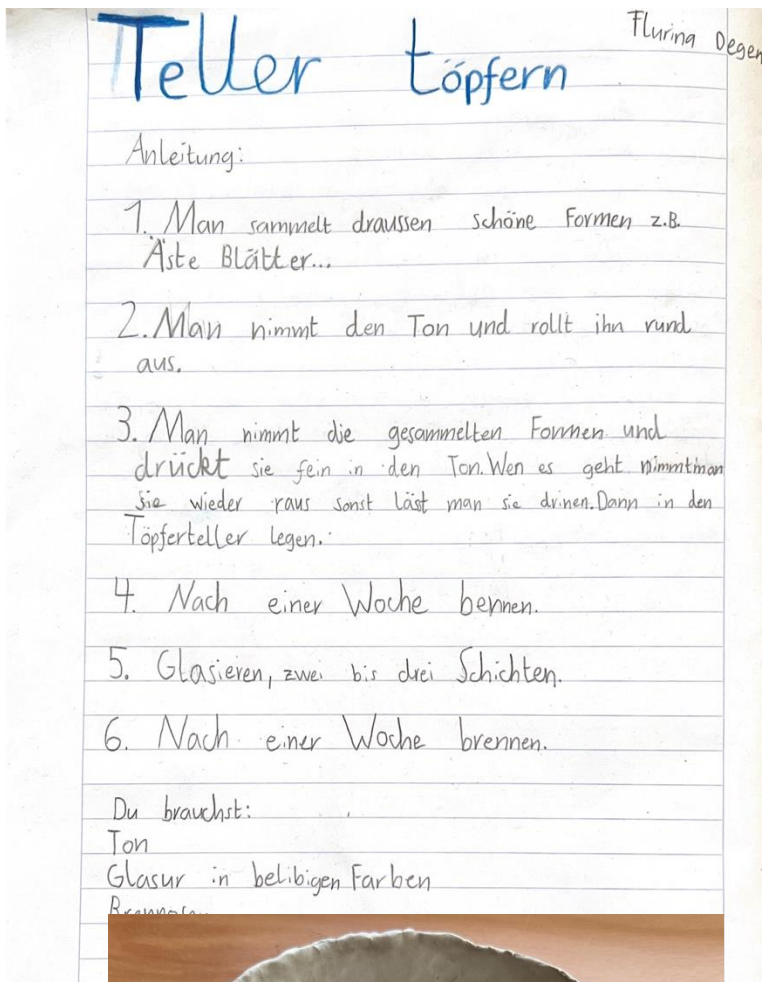 Flurina Degen
Teller töpfern
Anleitung:
1. Man sammelt draussen schöne Formen z.B.
Äste Blätter...
2. Man nimmt den Ton und rollt ihn rund
aus.
3. Man nimmt die gesammelten Formen und
drückt sie fein in den Ton. Wen es geht nimmt man
sie wieder raus sonst läst man sie drinen. Dann in den
Töpferteller legen.
4. Nach einer Woche bennen.
5. Glasieren, zwei bis drei Schichten.
6. Nach einer Woche brennen.
Du brauchst:
Ton
Glasur in belibigen Farben